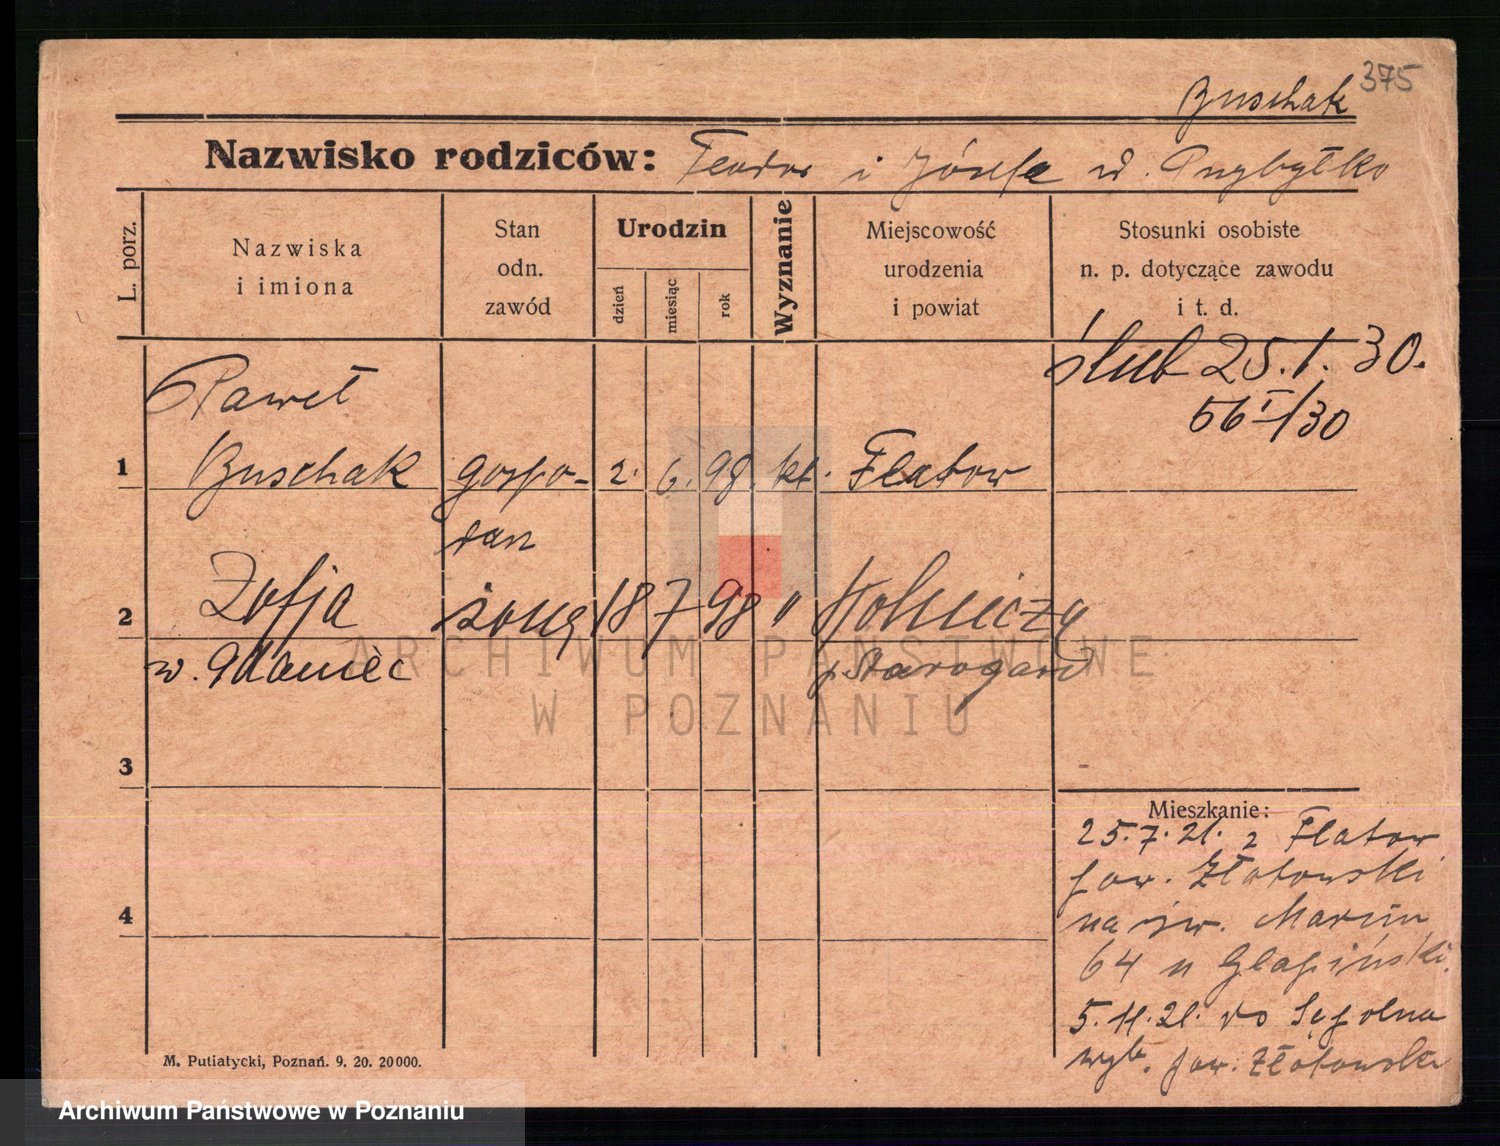 375
Buschak
Nazwisko rodziców: Teodor i Józefa d. Przybyłko
L. porz.
Nazwiska
i imiona
Stan
odn.
zawód
Urodzin
dzień
miesiąc
rok
Wyznanie
Miejscowość
urodzenia
i powiat
Stosunki osobiste
n. p. dotyczące zawodu
i t. d.
ślub 25.1.30.
56 I/30
Paweł
1 Buschak gospo- 2. 6. 98. kt. Flatow
darz
2 Zofja żona 18 7 98 "
p. Starogard
3
Mieszkanie:
25.7.21. z Flatow
pow. Złotowski
na św. Marcin
64 u Glapiński.
4
5.11.21. do Sępolna
wyb. pow. Złotowski
M. Putiatycki, Poznań. 9. 20. 20000.
ARCHIWUM PAŃSTWOWE
W POZNANIU
Archiwum Państwowe w Poznaniu